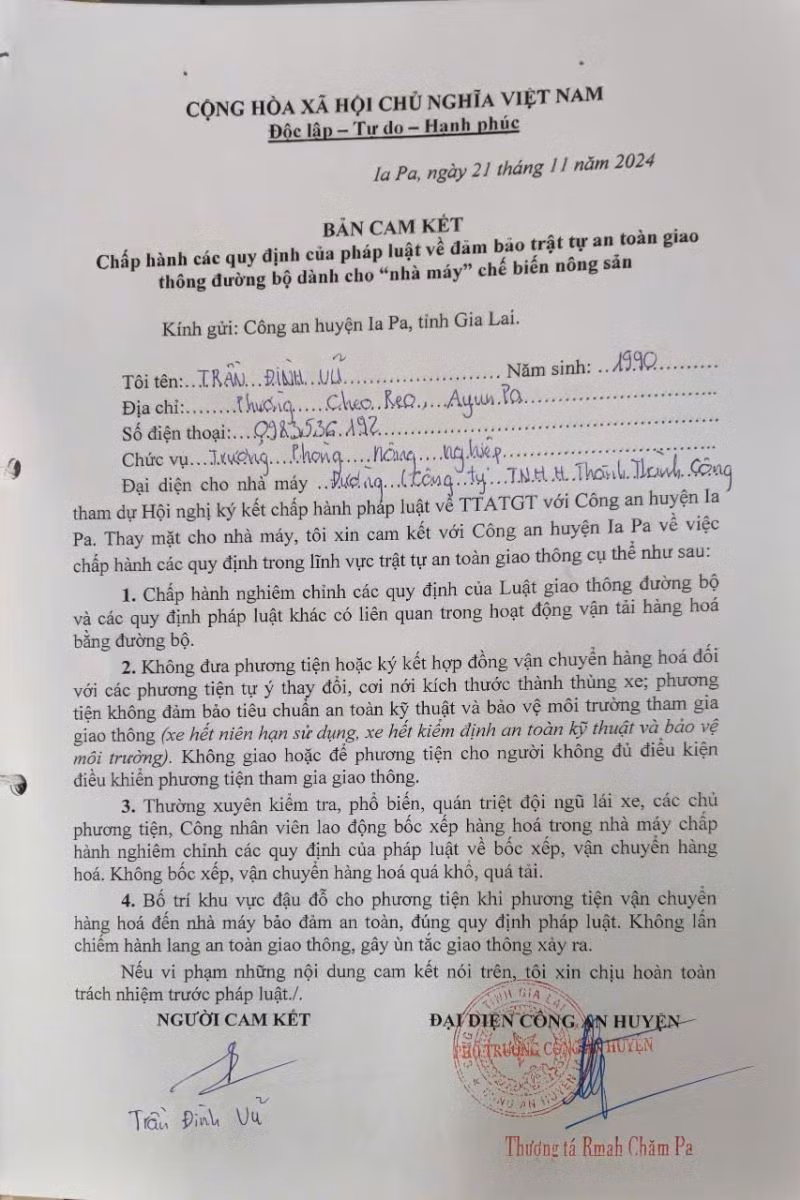 CỘNG HÒA XÃ HỘI CHỦ NGHĨA VIỆT NAM
Độc lập – Tự do – Hạnh phúc
Ia Pa, ngày 21 tháng 11 năm 2024
BẢN CAM KẾT
Chấp hành các quy định của pháp luật về đảm bảo trật tự an toàn giao
thông đường bộ dành cho “nhà máy” chế biến nông sản
Kính gửi: Công an huyện Ia Pa, tỉnh Gia Lai.
Tôi tên: TRẦN ĐÌNH VŨ Năm sinh: 1990
Địa chỉ: Phường Cheo Reo, Ayun Pa
Số điện thoại: 0983536.192
Chức vụ Trưởng Phòng nông nghiệp
Đại diện cho nhà máy Đường (Công ty TNHH Thành Thành Công
tham dự Hội nghị ký kết chấp hành pháp luật về TTATGT với Công an huyện Ia
Pa. Thay mặt cho nhà máy, tôi xin cam kết với Công an huyện Ia Pa về việc
chấp hành các quy định trong lĩnh vực trật tự an toàn giao thông cụ thể như sau:
1. Chấp hành nghiêm chỉnh các quy định của Luật giao thông đường bộ
và các quy định pháp luật khác có liên quan trong hoạt động vận tải hàng hoá
bằng đường bộ.
2. Không đưa phương tiện hoặc ký kết hợp đồng vận chuyển hàng hoá đối
với các phương tiện tự ý thay đổi, cơi nới kích thước thành thùng xe; phương
tiện không đảm bảo tiêu chuẩn an toàn kỹ thuật và bảo vệ môi trường tham gia
giao thông (xe hết niên hạn sử dụng, xe hết kiểm định an toàn kỹ thuật và bảo vệ
môi trường). Không giao hoặc để phương tiện cho người không đủ điều kiện
điều khiển phương tiện tham gia giao thông.
3. Thường xuyên kiểm tra, phổ biến, quán triệt đội ngũ lái xe, các chủ
phương tiện, Công nhân viên lao động bốc xếp hàng hoá trong nhà máy chấp
hành nghiêm chỉnh các quy định của pháp luật về bốc xếp, vận chuyển hàng
hoá. Không bốc xếp, vận chuyển hàng hoá quá khổ, quá tải.
4. Bố trí khu vực đậu đỗ cho phương tiện khi phương tiện vận chuyển
hàng hoá đến nhà máy bảo đảm an toàn, đúng quy định pháp luật. Không lấn
chiếm hành lang an toàn giao thông, gây ùn tắc giao thông xảy ra.
Nếu vi phạm những nội dung cam kết nói trên, tôi xin chịu hoàn toàn
trách nhiệm trước pháp luật./.
NGƯỜI CAM KẾT ĐẠI DIỆN CÔNG AN HUYỆN
PHÓ TRƯỞNG CÔNG AN HUYỆN
TỈNH GIA LAI
CÔNG AN HUYỆN
Trần Đình Vũ
Thượng tá Rmah Chăm Pa